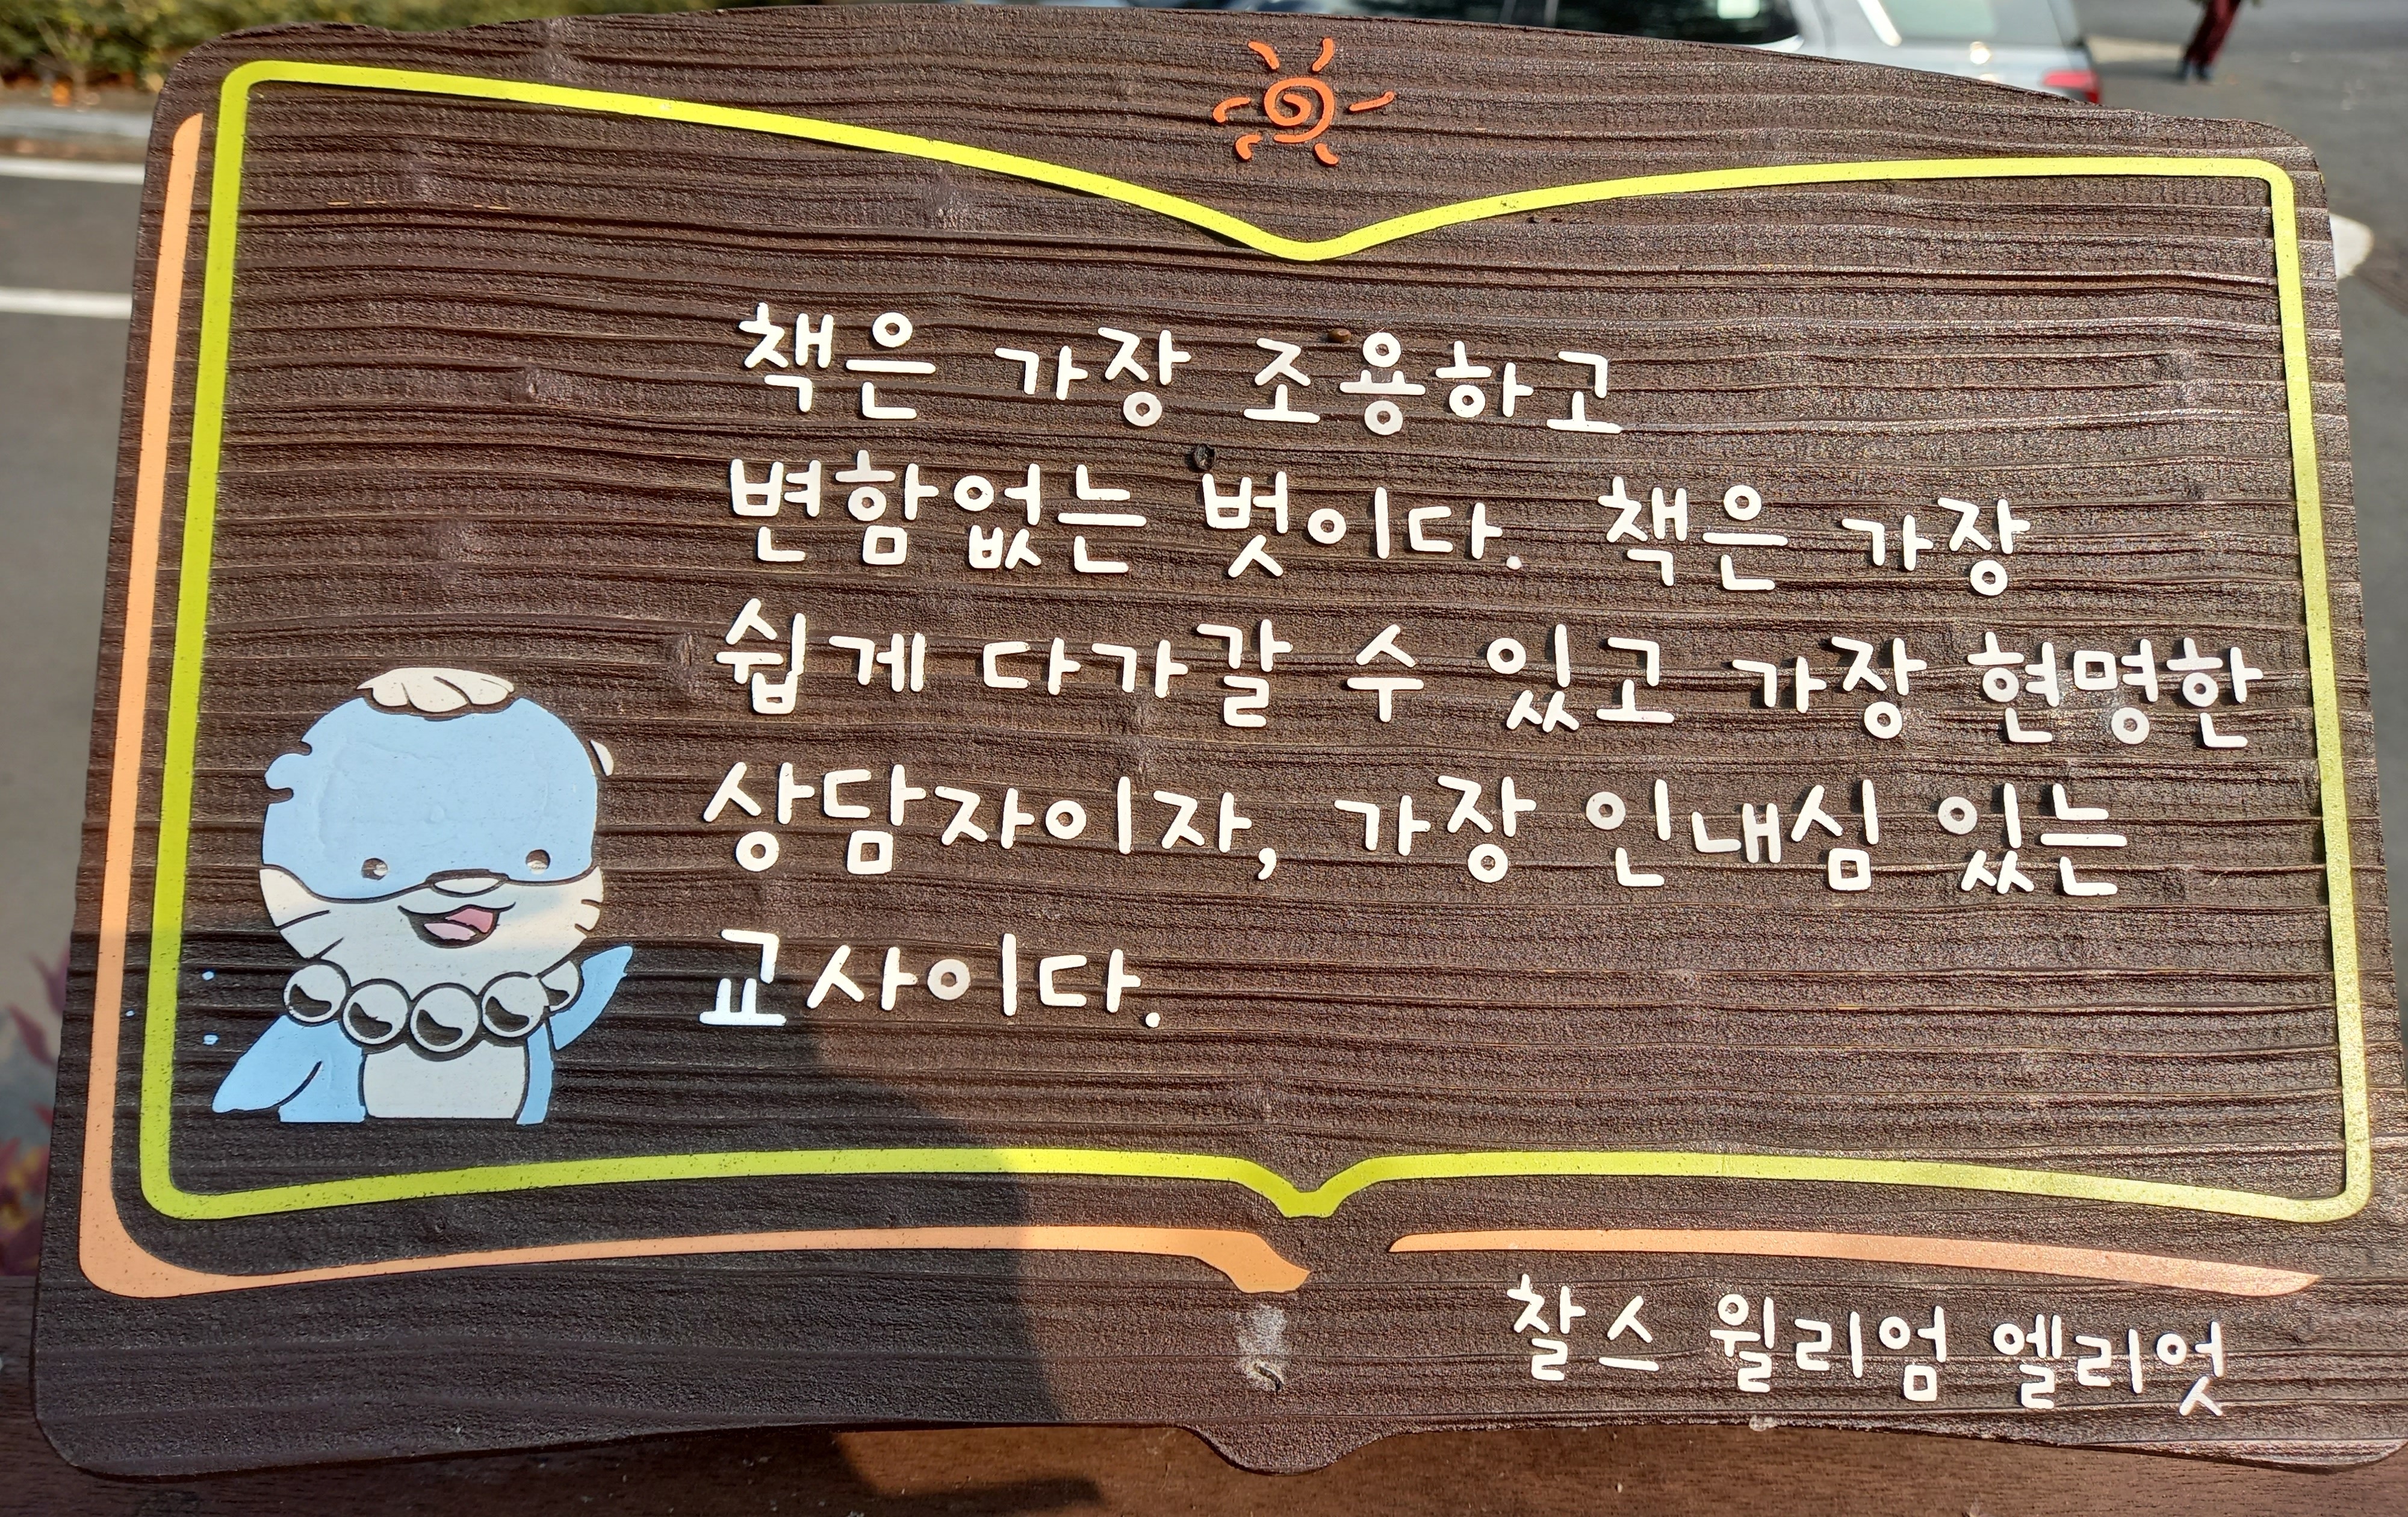 책은 가장 조용하고
변함없는 벗이다. 책은 가장
쉽게 다가갈 수 있고 가장 현명한
상담자이자, 가장 인내심 있는
교사이다.
찰스 윌리엄 엘리엇